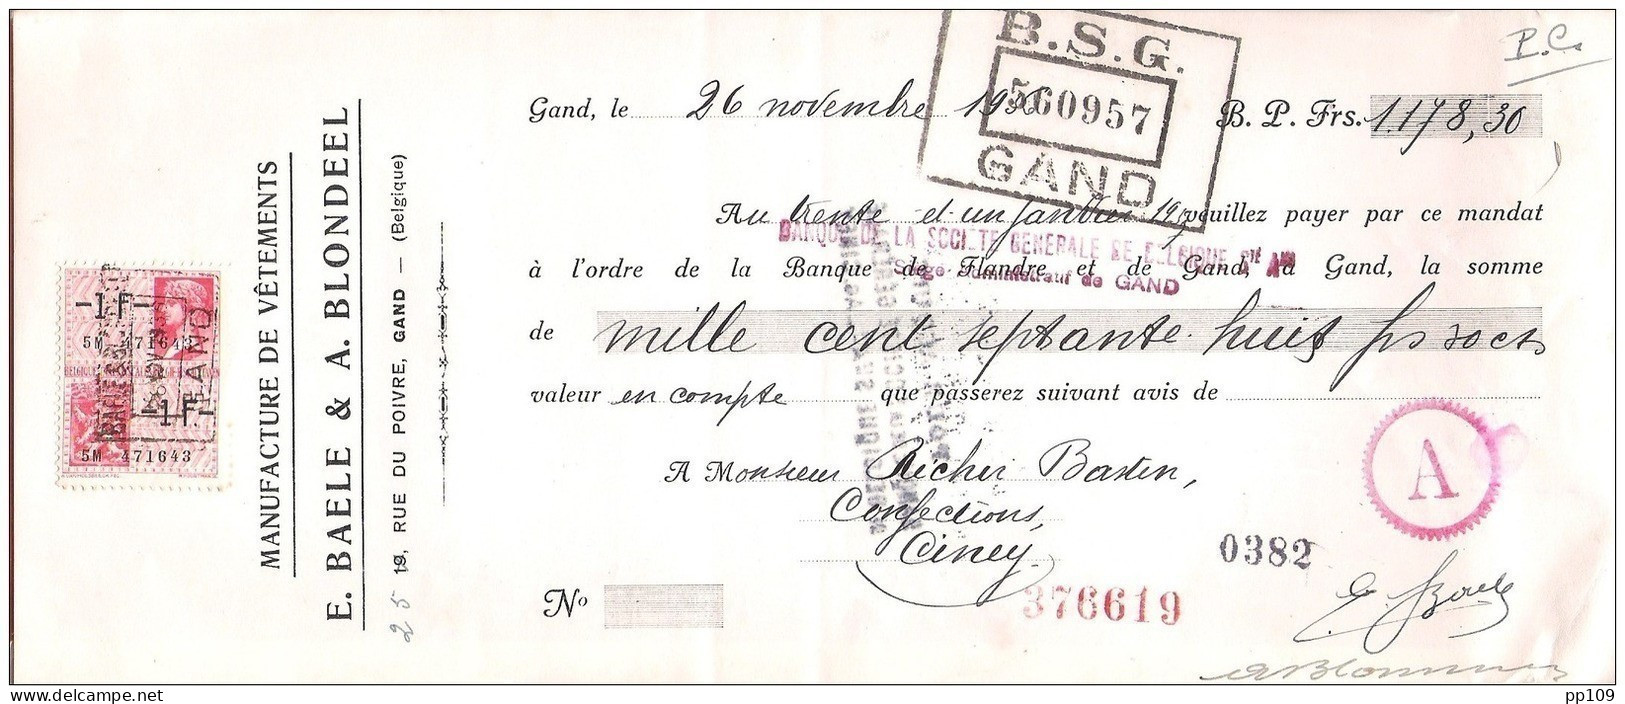 P.C.
B.S.G.
560957
GAND
Gand, le 26 novembre 19
B. P. Frs. 1.178,30
Au trente et un janvier 19 veuillez payer par ce mandat
BANQUE DE LA SOCIETE GENERALE DE BELGIQUE
à l'ordre de la Banque de Flandre et de Gand, à Gand, la somme
Siège Administratif de GAND
de mille cent septante huit frs 30 cts
valeur en compte que passerez suivant avis de
A Monsieur Richir Basten,
Confections,
Ciney
A
0382
Nº
376619
E. Baele
A Blondeel
MANUFACTURE DE VÊTEMENTS
E. BAELE & A. BLONDEEL
25 19, RUE DU POIVRE, GAND — (Belgique)
-1F-
5M 471643
GAND
-1F-
5M 471643
pp109